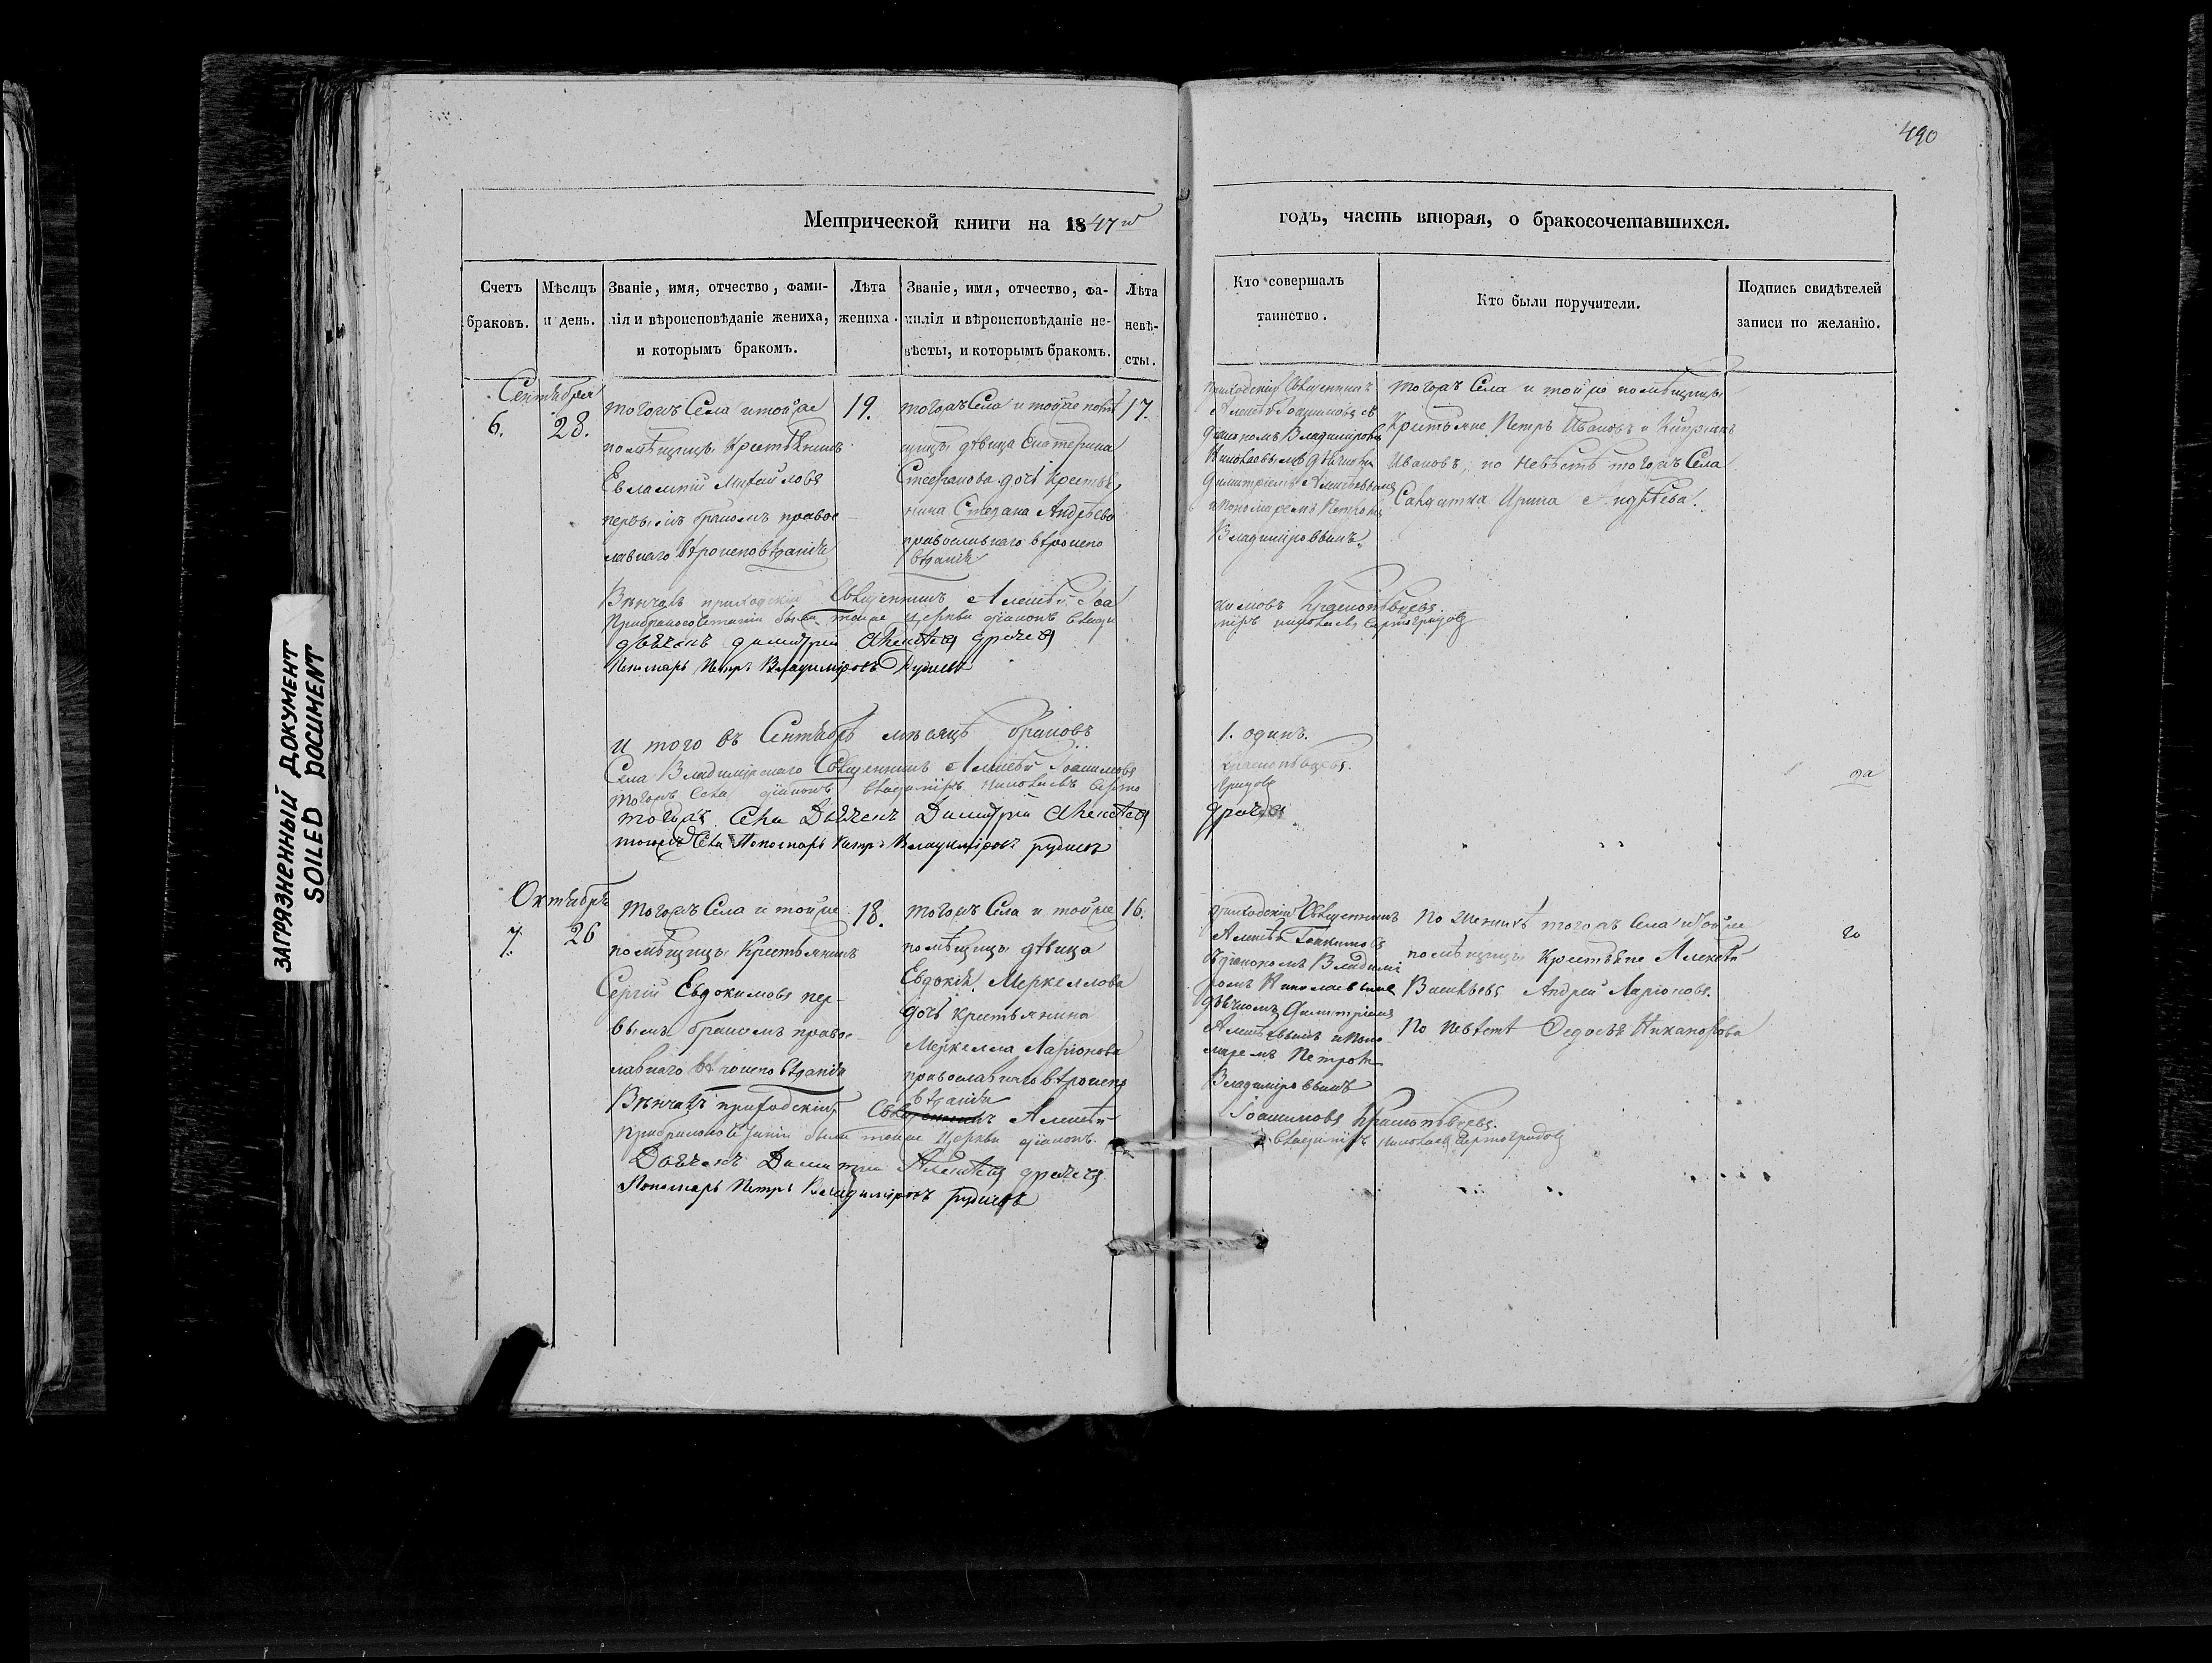 490
Метрической книги на 1847й
годъ, часть вторая, о бракосочетавшихся.
Счетъ браковъ.
Мѣсяцъ и день.
Званіе, имя, отчество, фами-
лія и вѣроисповѣданіе жениха,
и которымъ бракомъ.
Лѣта
жениха.
Званіе, имя, отчество, фа-
милія и вѣроисповѣданіе не-
вѣсты, и которымъ бракомъ.
Лѣта
невѣ-
сты.
Кто совершалъ
таинство.
Кто были поручители.
Подпись свидѣтелей
записи по желанію.
Сентября
6.
28.
тогожъ Села и тойже
помѣщицы Крестьянинъ
Евлампій Михайловъ
первымъ бракомъ право
лавнаго вѣроисповѣданія
19.
тогожъ Села и тойже помѣ
щицы дѣвица Екатерина
Стефанова дочь Крестья
нина Стефана Андрѣева
православнаго вѣроиспо
вѣданія
17.
приходскій Священникъ
Алексѣй Іоакимовъ съ
діакономъ Владиміромъ
Николаевымъ дьячкомъ
Димитріемъ Алексѣевымъ
и пономаремъ Петромъ
Владиміровымъ.
тогожъ Села и тойже помѣщицы
Крестьяне Петръ Ивановъ и Кипріанъ
Ивановъ, по невѣстѣ тогожъ Села
Салдатка Ирина Андрѣева.
Вѣнчалъ приходскій Священникъ Алексѣй Іоа
кимовъ
При бракосочетаніи были тойже Церкви діаконъ Влади
міръ Николаевъ
дьячекъ димитрій Алексѣевъ
Пономарь Петръ Владиміровъ
И того въ Сентябрѣ мѣсяцѣ браковъ
1. одинъ.
Села Владимірскаго Священникъ Алексѣй Іоакимовъ
тогожъ Села діаконъ Владиміръ Николаевъ
тогожъ Села Дьячекъ Димитрій Алексѣевъ
тогожъ Села Пономарь Петръ Владиміровъ
Октябрь
7.
26
тогожъ Села и тойже
помѣщицы Крестьянинъ
Сергій Евдокимовъ пер-
вымъ бракомъ правос
лавнаго вѣроисповѣданія
18.
тогожъ Села и тойже
помѣщицы дѣвица
Евдокія Меркеллова
дочь крестьянина
Меркелла Ларіонова
православнаго вѣроиспо
вѣданія
16.
приходскій Священникъ
Алексѣй Іоакимовъ
съ діакономъ Владимі
ромъ Николаевымъ
дьячкомъ Димитріемъ
Алексѣевымъ и поно
маремъ Петромъ
Владиміровымъ
По женихѣ тогожъ Села и тойже
помѣщицы Крестьяне Алексѣй
Васильевъ Андрей Ларіоновъ.
По невѣстѣ Федосѣй Никаноровъ
Вѣнчалъ приходскій Священникъ Алексѣй
Іоакимовъ
При бракосочетаніи были тойже Церкви діаконъ
Владиміръ Николаевъ
Дьячекъ Димитрій Алексѣевъ
Пономарь Петръ Владиміровъ
ЗАГРЯЗНЕННЫЙ ДОКУМЕНТ
SOILED DOCUMENT